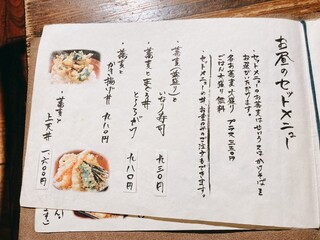 お昼のセットメニュー
・セットメニューのお蕎麦はせいろ又はかけそばを
お選びいただけます。
・各お蕎麦大盛り プラス三五〇円
ごはん大盛り無料
・セットメニューの丼 お食のみのご注文もできます。
・蕎麦(並盛り)と
いなり寿司 九三〇円
・蕎麦とまぐろ丼
とろろがけ 九八〇円
・蕎麦と
かき揚げ丼 九八〇円
・蕎麦と
上天丼 一六〇〇円